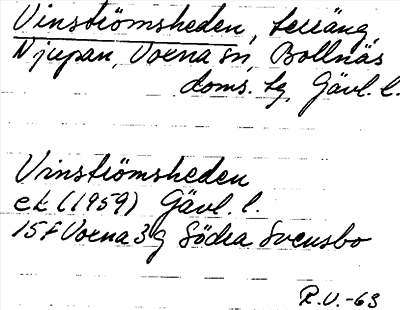 Vinströmsheden, terräng,
Njupan, Voxna sn, Bollnäs
doms. tg, Gävl. l.
Vinströmsheden
ek (1959) Gävl. l.
15F Voxna 3g Södra Svensbo
R.V.-63